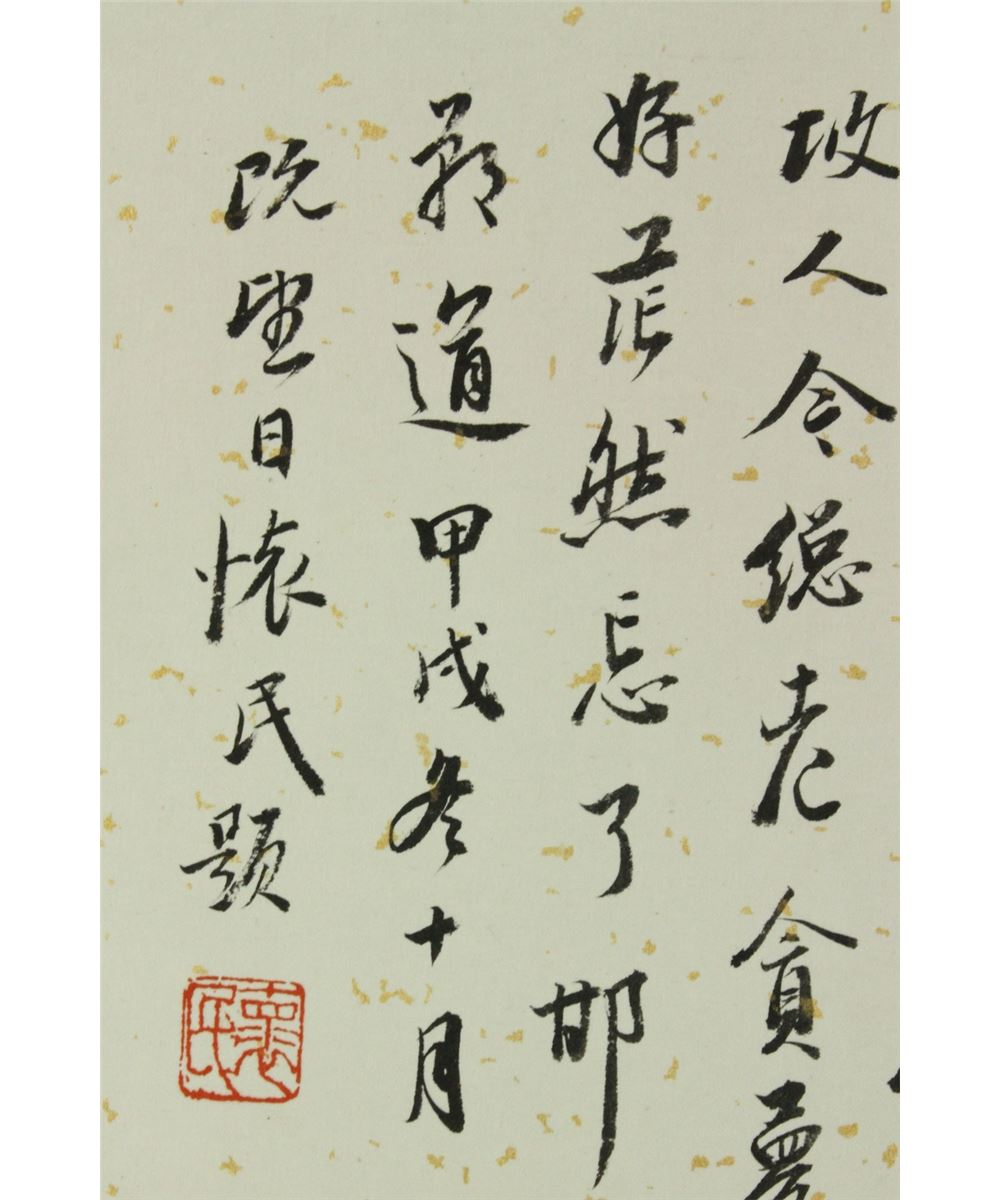 故人今總老貪夢
好茫然忘了邯
鄲道甲戌冬十月
既望日懷民題
懷民